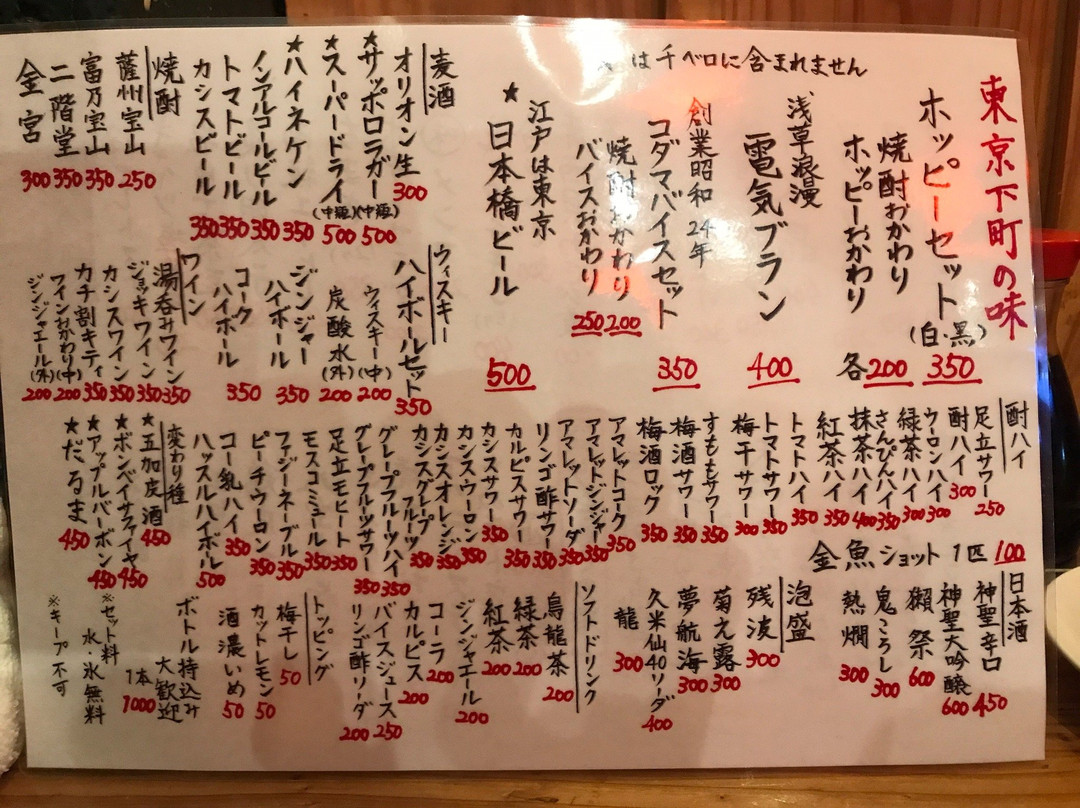 東京下町の味
ホッピーセット(白・黒) 350
焼酎おかわり
ホッピーおかわり 各200
浅草浪漫
電気ブラン 400
創業昭和24年
コダマバイスセット 350
焼酎おかわり 200
バイスおかわり 250
江戸は東京
★日本橋ビール 500
は千ベロに含まれません
麦酒
オリオン生 300
★サッポロラガー(中瓶) 500
★スーパードライ(中瓶) 500
★ハイネケン 350
ノンアルコールビール 350
トマトビール 350
カシスビール 350
焼酎
薩州宝山 250
富乃宝山 350
二階堂 350
金宮 300
ウィスキー
ハイボールセット 350
ウィスキー(中) 200
炭酸水(外) 200
ジンジャーハイボール 350
コークハイボール 350
ワイン
湯呑みワイン 350
ジョッキワイン 350
カシスワイン 350
カチ割キティ 350
ワインおかわり(中) 200
ジンジャエール(外) 200
酎ハイ
足立サワー 250
酎ハイ 300
ウーロンハイ 300
緑茶ハイ 300
さんぴんハイ 350
抹茶ハイ 400
紅茶ハイ 350
トマトハイ 350
トマトサワー 350
梅干サワー 300
すももサワー 350
梅酒サワー 350
梅酒ロック 350
アマレットコーク 350
アマレットジンジャー 350
アマレットソーダ 350
リンゴ酢サワー 350
カルピスサワー 350
カシスサワー 350
カシスウーロン 350
カシスオレンジ 350
カシスグレープフルーツ 350
グレープフルーツハイ 350
グレープフルーツサワー 350
足立モヒート 350
モスコミュール 350
ファジーネーブル 350
ピーチウーロン 350
コーヒー乳ハイ 350
ハッスルハイボール 500
変わり種
★五加皮酒 450
★ボンベイサファイヤ 450
★アップルバーボン 450
★だるま 450
金魚ショット 1匹 100
日本酒
神聖辛口 450
神聖大吟醸 600
獺祭 600
鬼ころし 300
熱燗 300
泡盛
残波 300
菊之露 300
夢航海 300
久米仙40ソーダ 400
龍 300
ソフトドリンク
烏龍茶 200
緑茶 200
紅茶 200
ジンジャエール 200
コーラ 200
カルピス 200
バイスジュース 250
リンゴ酢ソーダ 200
トッピング
梅干し 50
カットレモン 50
酒濃いめ 50
ボトル持込み大歓迎
1本1000
※セット料 水・氷無料
※キープ不可